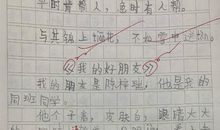 平时肯帮人,急时有人帮。
与其锦上添花,不如雪中送炭。
我的好朋友
我的朋友是陈梓瑶,他是我的
同班同学。
他个子高,皮肤白,眼睛大大